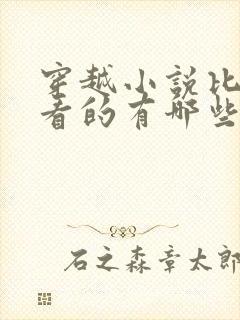 穿越小说比
看的有哪些
石之森章太郎